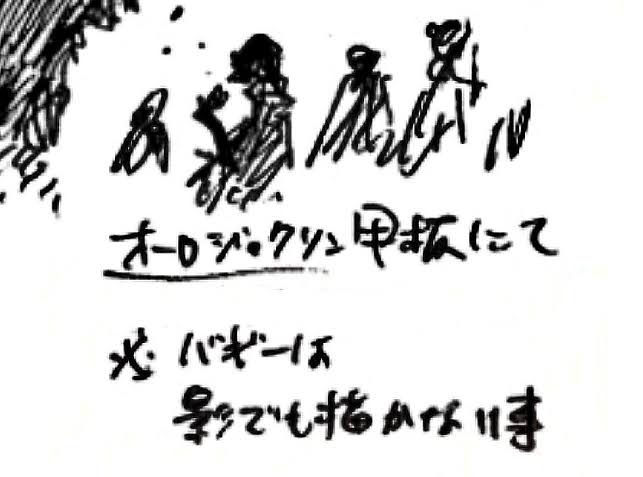 オーロジャクソン甲板にて
※バギーは
影でも描かない事